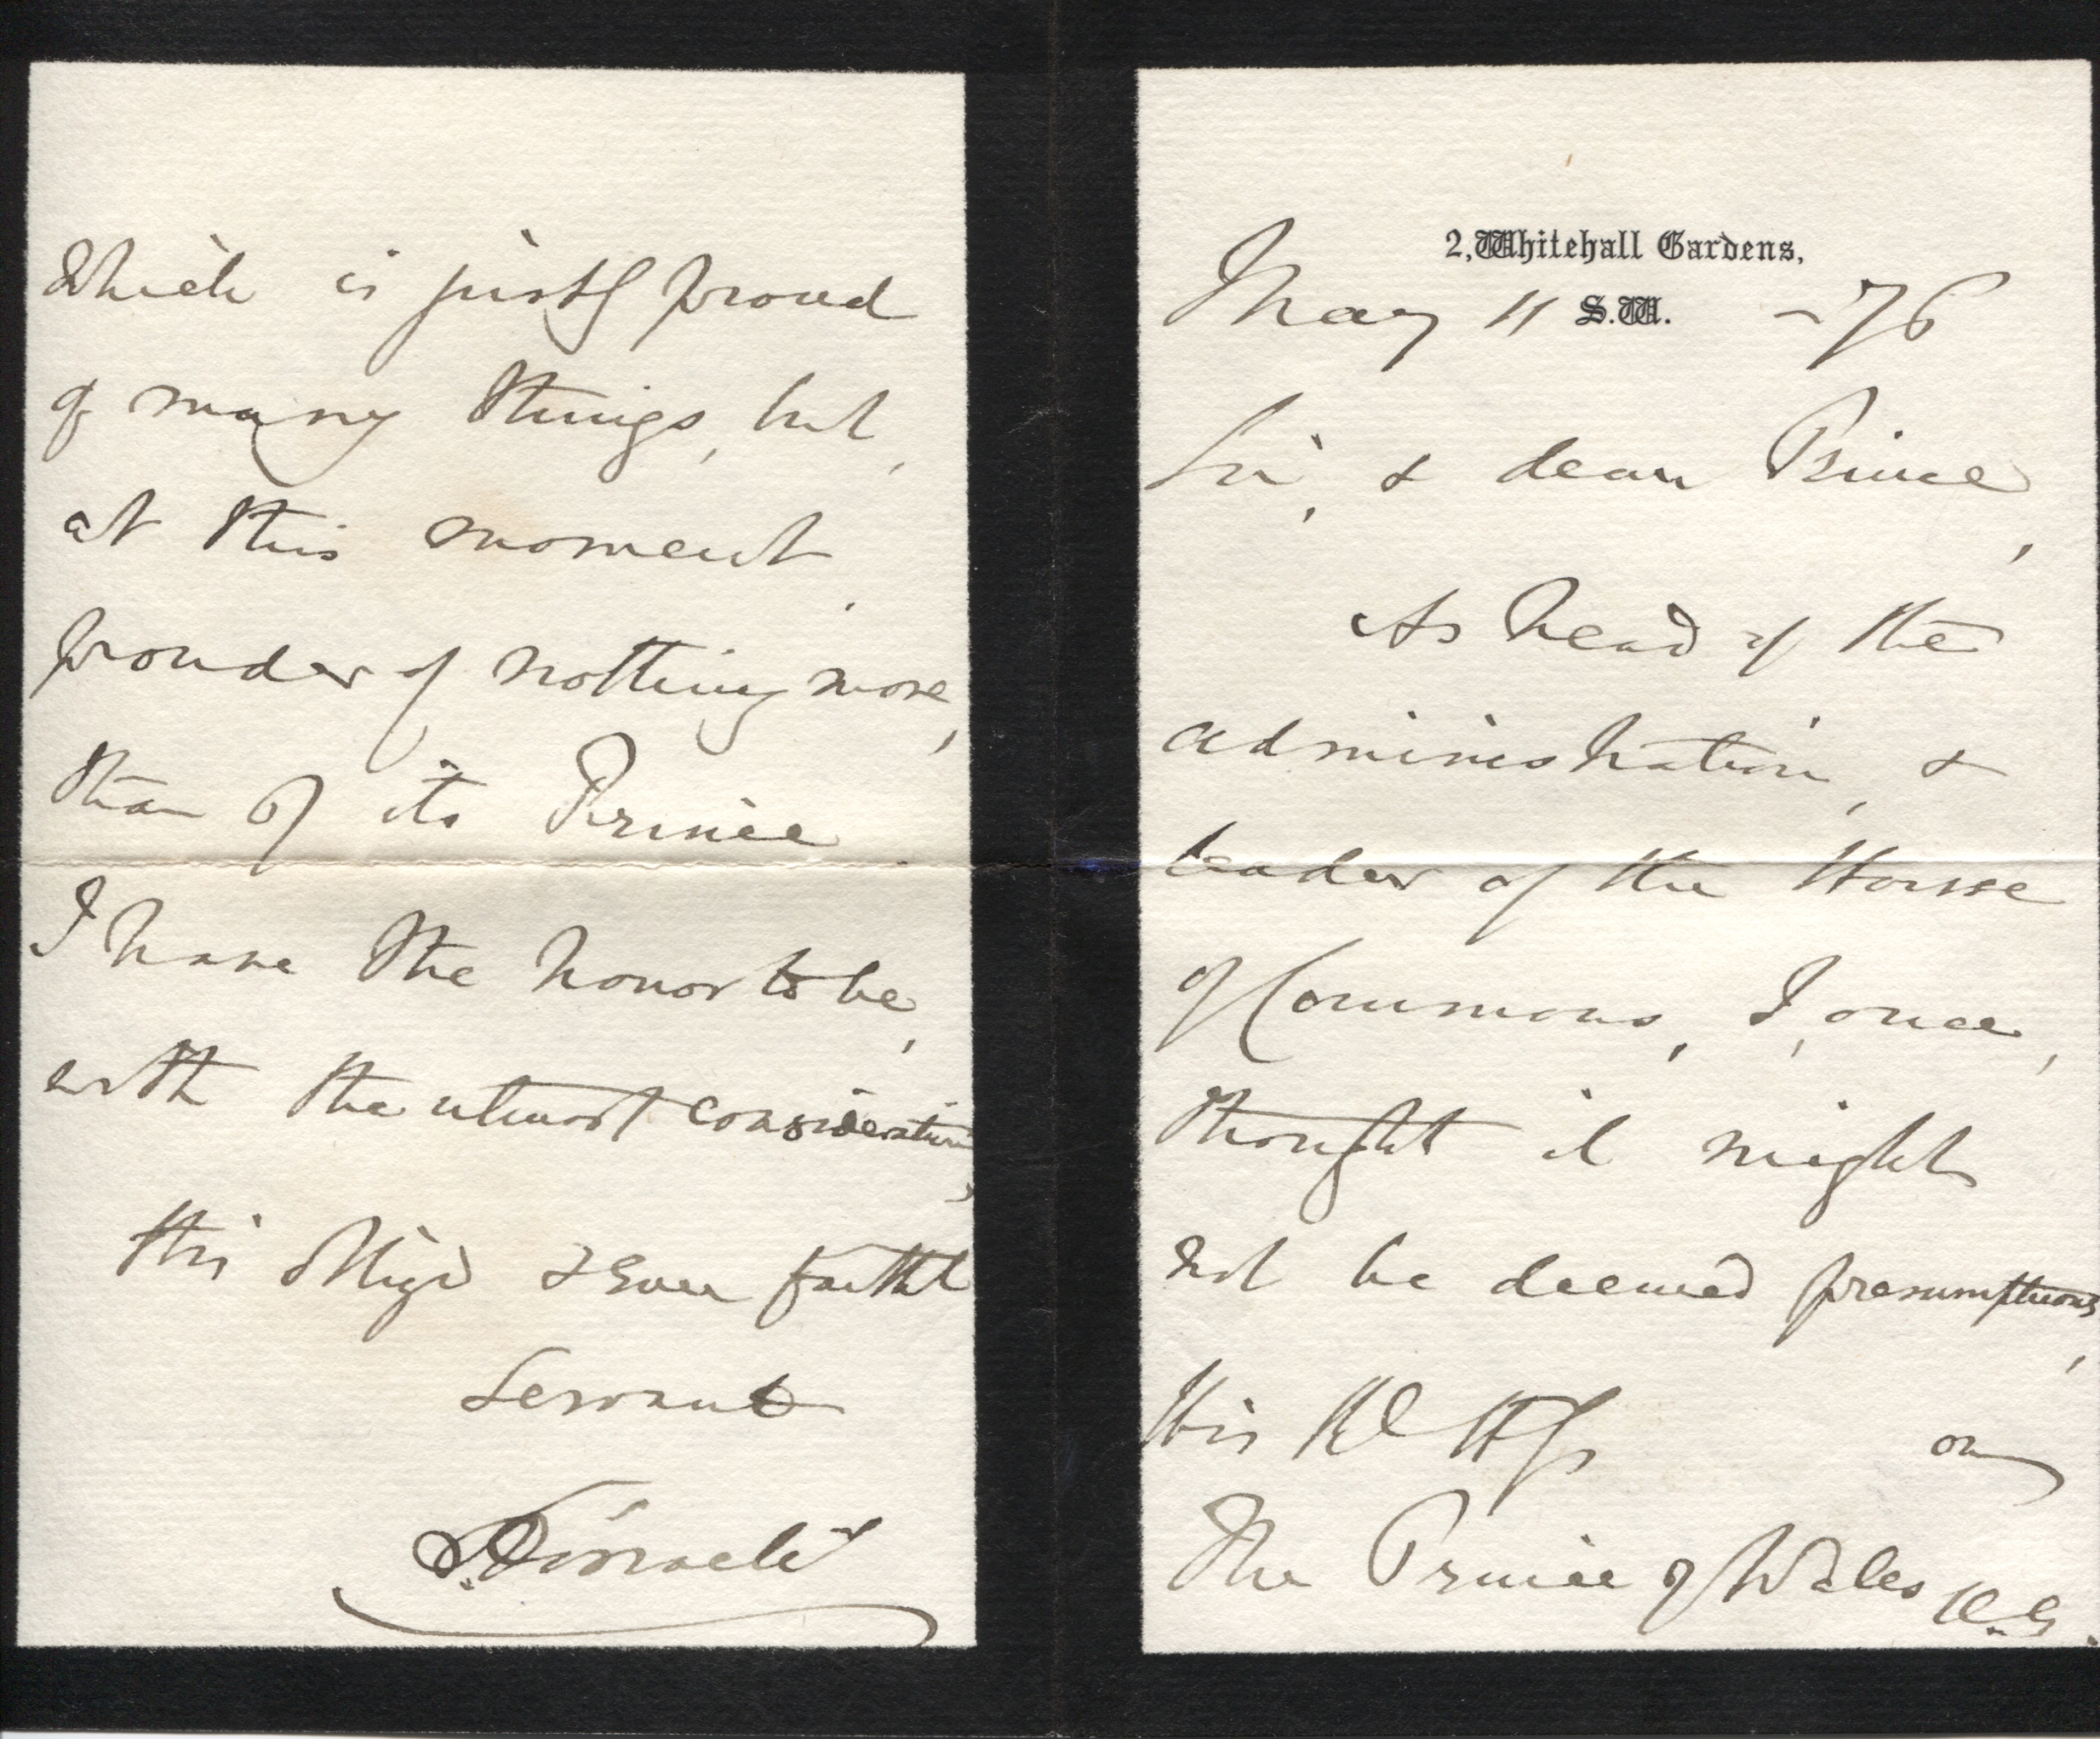 2, Whitehall Gardens,
S.W.
May 11 -76
Sir, & dear Prince,
As head of the
administration, &
leader of the House
of Commons, I, once,
thought it might
not be deemed presumptuous,
on
His Rl Hss
The Prince of Wales K.G.
which is justly proud
of many things, but,
at this moment,
prouder of nothing more,
than of its Prince.
I have the honor to be,
with the utmost consideration,
Sir,
Yr obligd & ever faithl
Servant
B. Disraeli